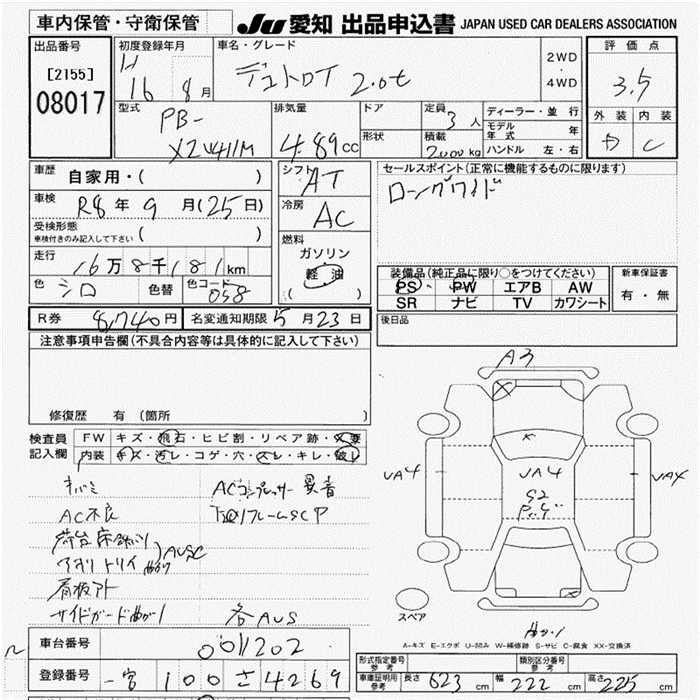 車内保管・守衛保管 JU 愛知 出品申込書 JAPAN USED CAR DEALERS ASSOCIATION
出品番号 初度登録年月 車名・グレード 2WD 評価点
[2155] H 16 8月 デュトロT 2.0t ・ 3.5
08017 4WD
型式 排気量 ドア 定員 3人 ディーラー・並行 外装 内装
PB- モデル年式 年 C
XZU411M 4.89cc 形状 積載 2000kg ハンドル 左・右
車歴 自家用・( ) シフト AT セールスポイント(正常に機能するものに限ります)
車検 R8年9月(25日) 冷房 AC ロングワイド
受検形態 車検付きのみ記入して下さい ( )
燃料 ガソリン
走行 16万8千181km 軽油 装備品(純正品に限り○をつけてください) 新車保証書
色 シロ 色替 色コード 058 ( ) PS PW エアB AW 有・無
SR ナビ TV カワシート
R券 8,740円 名変通知期限 5月23日 後日品
注意事項申告欄(不具合内容等は具体的に記入して下さい)
A3
修復歴 有 (箇所
検査員 FW キズ・飛石・ヒビ割・リペア跡・X要
記入欄 内装 キズ・汚レ・コゲ・穴・スレ・キレ・破レ
UA4 UA4 UA4
S2
ACコンプレッサー 異音
AC不良 下回リフレームSCP
AUSC
サイドガード曲がり 各AUS
スペア
A=キズ E=エクボ U=凹み W=補修跡 S=サビ C=腐食 XX=交換済
車台番号 0011202
形式指定番号 参考 類別区分番号 参考
登録番号 一宮 100 さ 4269 車庫証明用 参考 長さ 623cm 幅 222cm 高さ 225cm